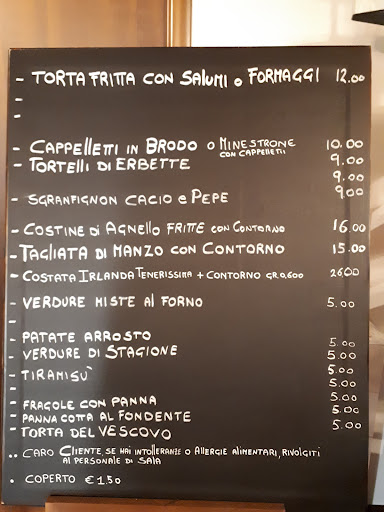 - TORTA FRITTA CON SALUMI o FORMAGGI 12.00
-
-
- CAPPELLETTI IN BRODO o MINESTRONE CON CAPPELLETTI 10.00
- TORTELLI DI ERBETTE 9.00
- 9.00
- SGRANFIGNON CACIO e PEPE 9.00
- COSTINE DI AGNELLO FRITTE CON CONTORNO 16.00
- TAGLIATA DI MANZO CON CONTORNO 15.00
- COSTATA IRLANDA TENERISSIMA + CONTORNO GR.0,600 2600
- VERDURE MISTE AL FORNO 5.00
-
- PATATE ARROSTO 5.00
- VERDURE DI STAGIONE 5.00
- TIRAMISÙ 5.00
- 5.00
- FRAGOLE CON PANNA 5.00
- PANNA COTTA AL FONDENTE 5.00
- TORTA DEL VESCOVO 5.00
.. CARO CLIENTE SE HAI INTOLLERANZE O ALLERGIE ALIMENTARI, RIVOLGITI
AL PERSONALE DI SALA
. COPERTO € 1.50